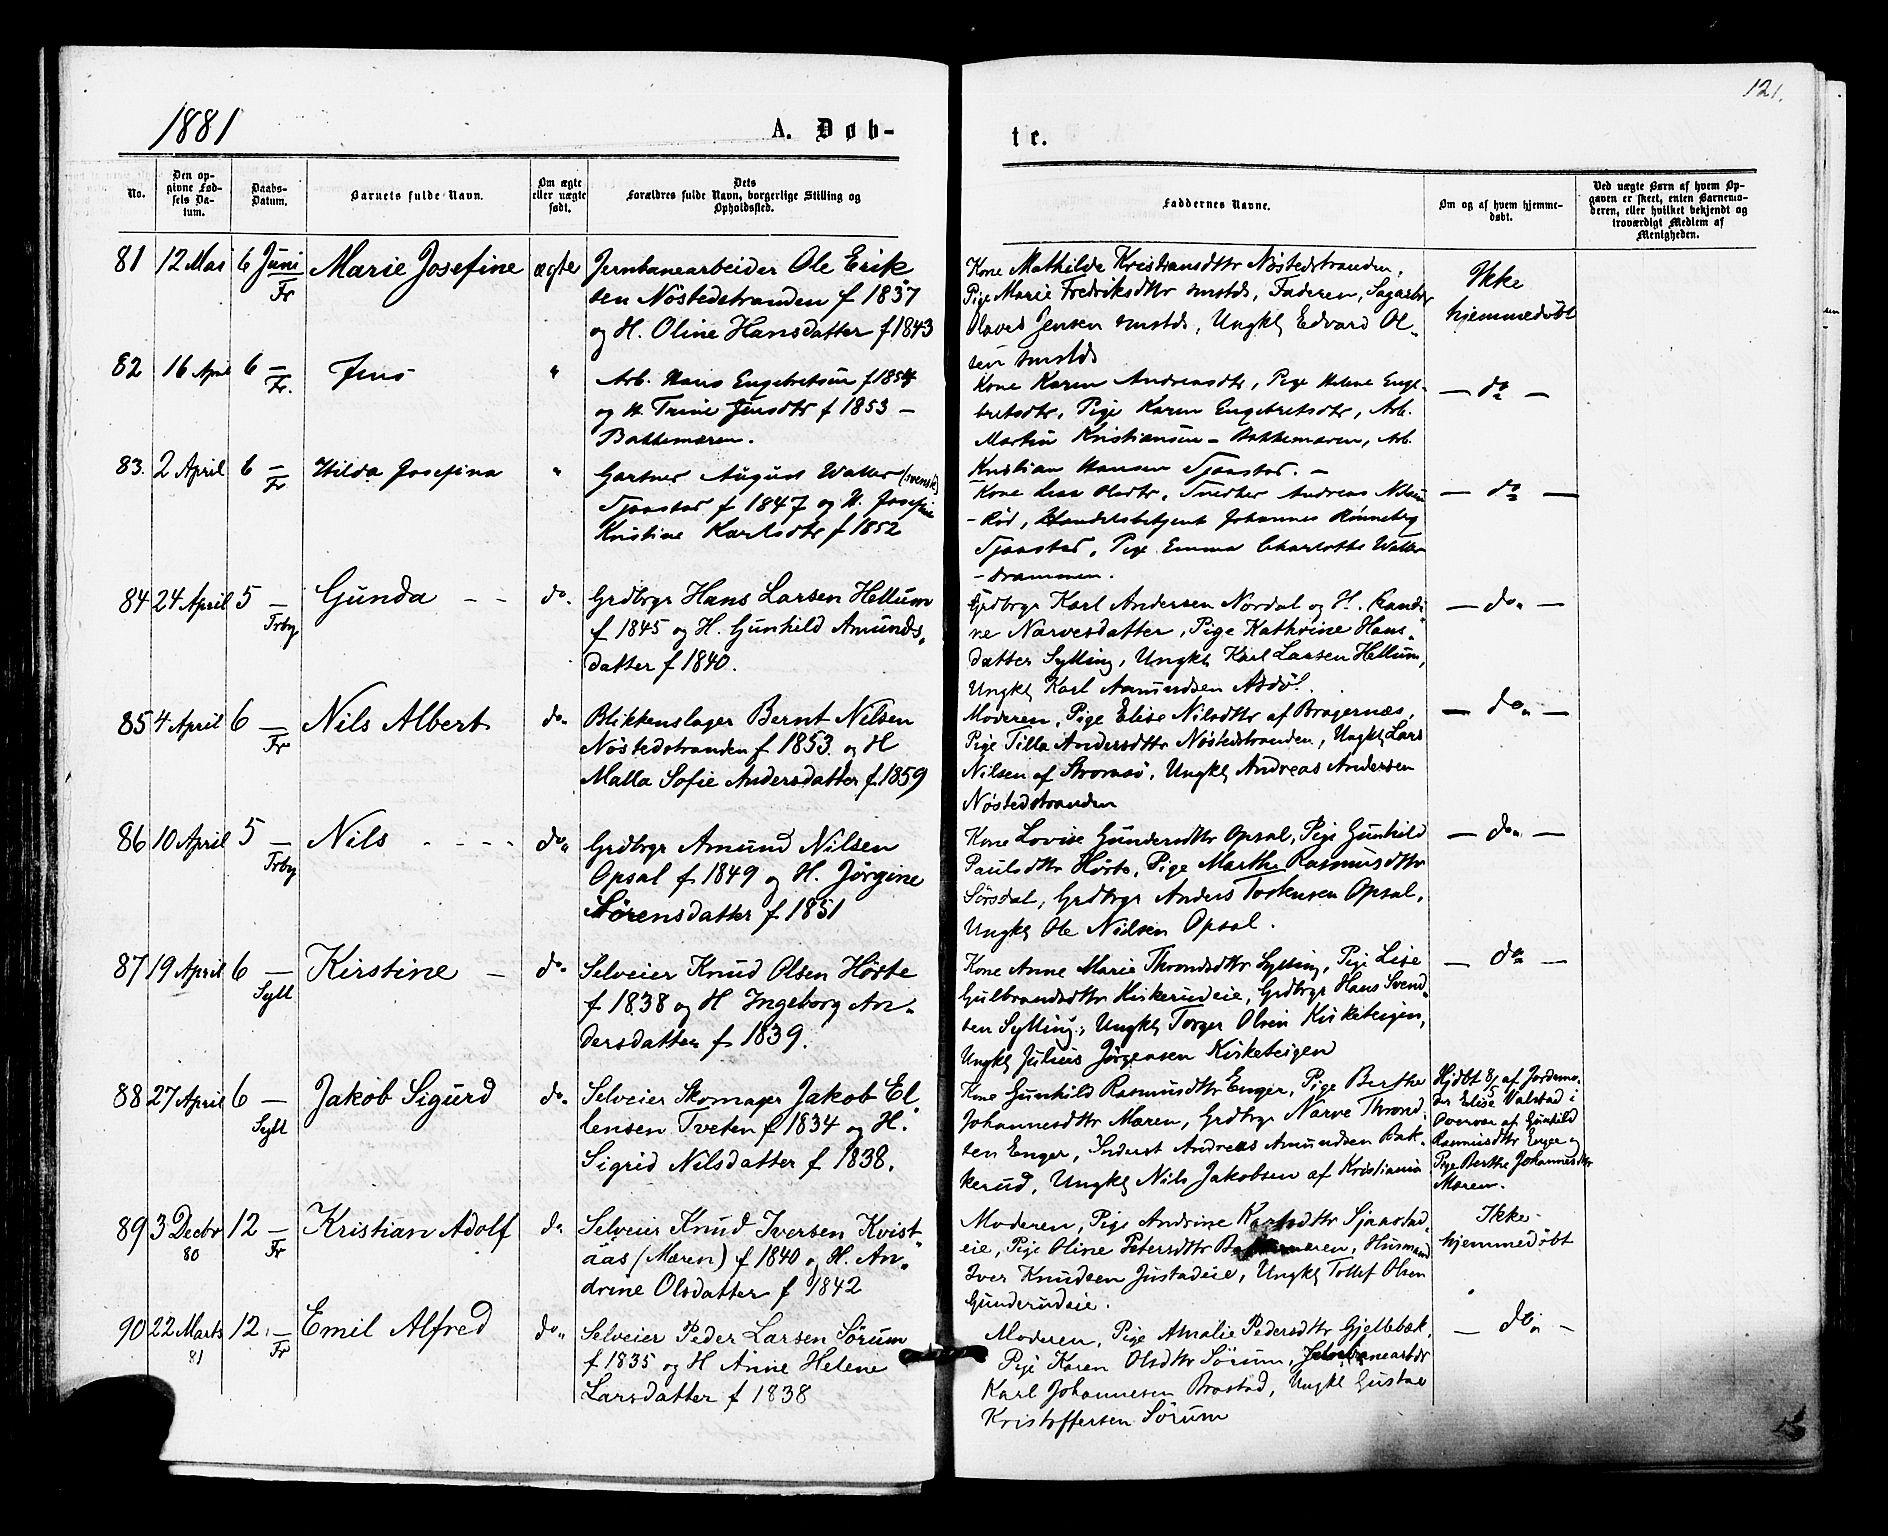 121.
1881
A. Døb-
te.
No.
Den op-
givne Fød-
sels Da-
tum.
Daabs-
Datum.
Barnets fulde Navn.
Om ægte
eller uægte
født.
Dets
Forældres fulde Navn, borgerlige Stilling og
Opholdssted.
Faddernes Navne.
Om og af hvem hjemme-
døbt.
Ved uægte Børn af hvem Op-
gaven er skeet, enten Barnemo-
deren, eller hvilket bekjendt og
troværdigt Medlem af
Menigheden.
81 12 Mai 6 Juni Fr Marie Josefine ægte
Jernbanearbeider Ole Erik
sen Nöstedstranden f 1837
og H. Oline Hansdatter f 1843
Kone Mathilde Kristiansdttr Nøstedstranden,
Pige Marie Fredriksdttr smstds, Faderen, Sagarbr
Olaves Jensen smstds, Ungkl Edvard Ol-
sen smstds
Ikke
hjemmedøbt
82 16 April 6 — Fr. Jens "
Arb. Hans Engebretsen f 1854
og H. Trine Jensdtr f 1853 —
Bakkemæren.
Kone Karen Andreasdtr, Pige Helene Enge-
bretsdtr, Pige Karen Engebretsdtr, Arb.
Martin Kristiansen - Bakkemæren, Arb.
Kristian Hansen Sjaastad. —
— do —
83. 2 April 6 — Fr Hilda Josefina "
Gartner August Waller (svensk)
Sjaastad f 1847 og H. Josefine
Kristine Karlsdtr f 1852
Kone Lisa Olsdtr, Snedker Andreas Nilsen
- Rød, Handelsbetjent Johannes Rönneberg
Sjaastad, Pige Emma Charlotte Waller
- Drammen.
— do —
84 24 April 5 — Trby Gunda — — do.
Grdbrgr Hans Larsen Hellum
f 1845 og H. Gunhild Amunds-
datter f 1840.
Grdbrgr Karl Andersen Nordal og H. Randi-
ne Narvesdatter, Pige Kathrine Hans-
datter Sylling, Ungkl Karl Larsen Hellum,
Ungkl Karl Amundsen Asdöl.
— do —
85 4 April 6 — Fr Nils Albert do.
Blikkenslager Bernt Nilsen
Nöstedstranden f 1853 og H
Malla Sofie Andersdatter f 1859
Moderen, Pige Elise Nilsdttr af Bragernæs,
Pige Tilla Andersdttr Nøstedstranden, Ungkl Lars
Nilsen af Stromsö, Ungkl Andreas Andersen
Nöstedstranden
— do —
86 10 April 5 — Trby Nils - - - - do
Grdbrgr Amund Nilsen
Opsal f 1849 og H. Jørgine
Sörensdatter f 1851
Kone Lovise Gundersdttr Opsal, Pige Gunhild
Paulsdttr Hörte, Pige Marthe Rasmusdttr
Sörsdal, Grdbrgr Anders Torstensen Opsal,
Ungkl Ole Nilsen Opsal.
— do —
87 19 April 6 — Syll Kirstine — do.
Selveier Knud Olsen Hörte
f 1838 og H Ingeborg An-
dersdatter f 1839.
Kone Anne Marie Throndsdttr Sylling, Pige Lise
Gulbrandsdttr Kirkerudeie, Grdbrgr Hans Svend-
sen Sylling, Ungkl Torger Olsen Kirketeigen,
Ungkl Julius Jörgensen Kirketeigen
— do —
88 27 April 6 — Syll Jakob Sigurd do.
Selveier Skomager Jakob El-
lensen Tveten f 1834 og H.
Sigrid Nilsdatter f 1838.
Kone Gunhild Rasmusdttr Enger, Pige Berthe
Johannesdttr Mæren, Grdbrgr Narve Thrond-
sen Enger, Inderst Andreas Amundsen Bak-
kerud, Ungkl Nils Jakobsen af Kristiania
Hjdbt 8/5 af Jordemo-
der Elise Valstad i
Overvær af Gunhild
Rasmusdttr Enger og
Pige Berthe Johannesdttr
Mæren.
89 3 Decbr 80 12 — Fr Kristian Adolf do
Selveier Knud Iversen Kvist-
aas (Mæren) f 1840 og H. An-
drine Olsdatter f 1842
Moderen, Pige Andrine Karlsdttr Sjaastad-
eie, Pige Oline Petersdttr Bakkemæren, Husmand
Iver Knudsen Justadeie, Ungkl Tollef Olsen
Gunderudeie.
Ikke
hjemmedøbt
90 22 Marts 81 12. — Fr Emil Alfred do.
Selveier Peder Larsen Sörum
f 1835 og H Anne Helene
Larsdatter f 1838
Moderen, Pige Amalie Pedersdttr Gjellebæk,
Pige Karen Olsdttr Sörum, Jernbanearbdr
Karl Johannesen Brastad, Ungkl Gustav
Kristoffersen Sörum
— do —